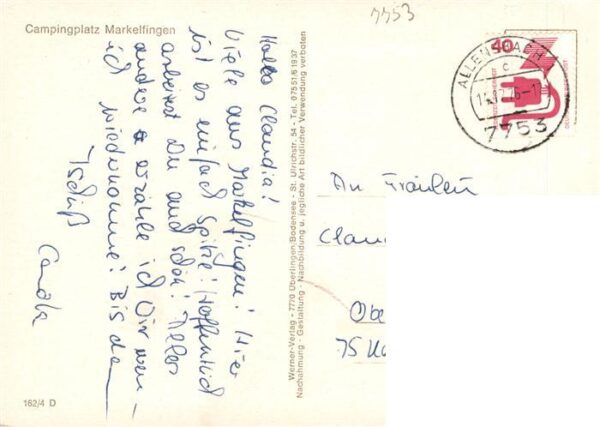 7753
Campingplatz Markelfingen
Hallo Claudia!
Viele aus Markelfingen! Hier
ist es einfach Spitze! Hoffentlich
arbeitest Du auch schön! Alles
andere erzähle ich Dir wenn
ich wiederkomme! Bis dann
Tschüß
Carola
162/4 D
Werner-Verlag - 7770 Überlingen/Bodensee - St. Ulrichstr. 54 - Tel. 07551/61937
Nachahmung - Gestaltung - Nachbildung u. jegliche Art bildlicher Verwendung verboten
40
ALLENSBACH
c
7753
An Fräulein
Clau
Obe
75 Ka